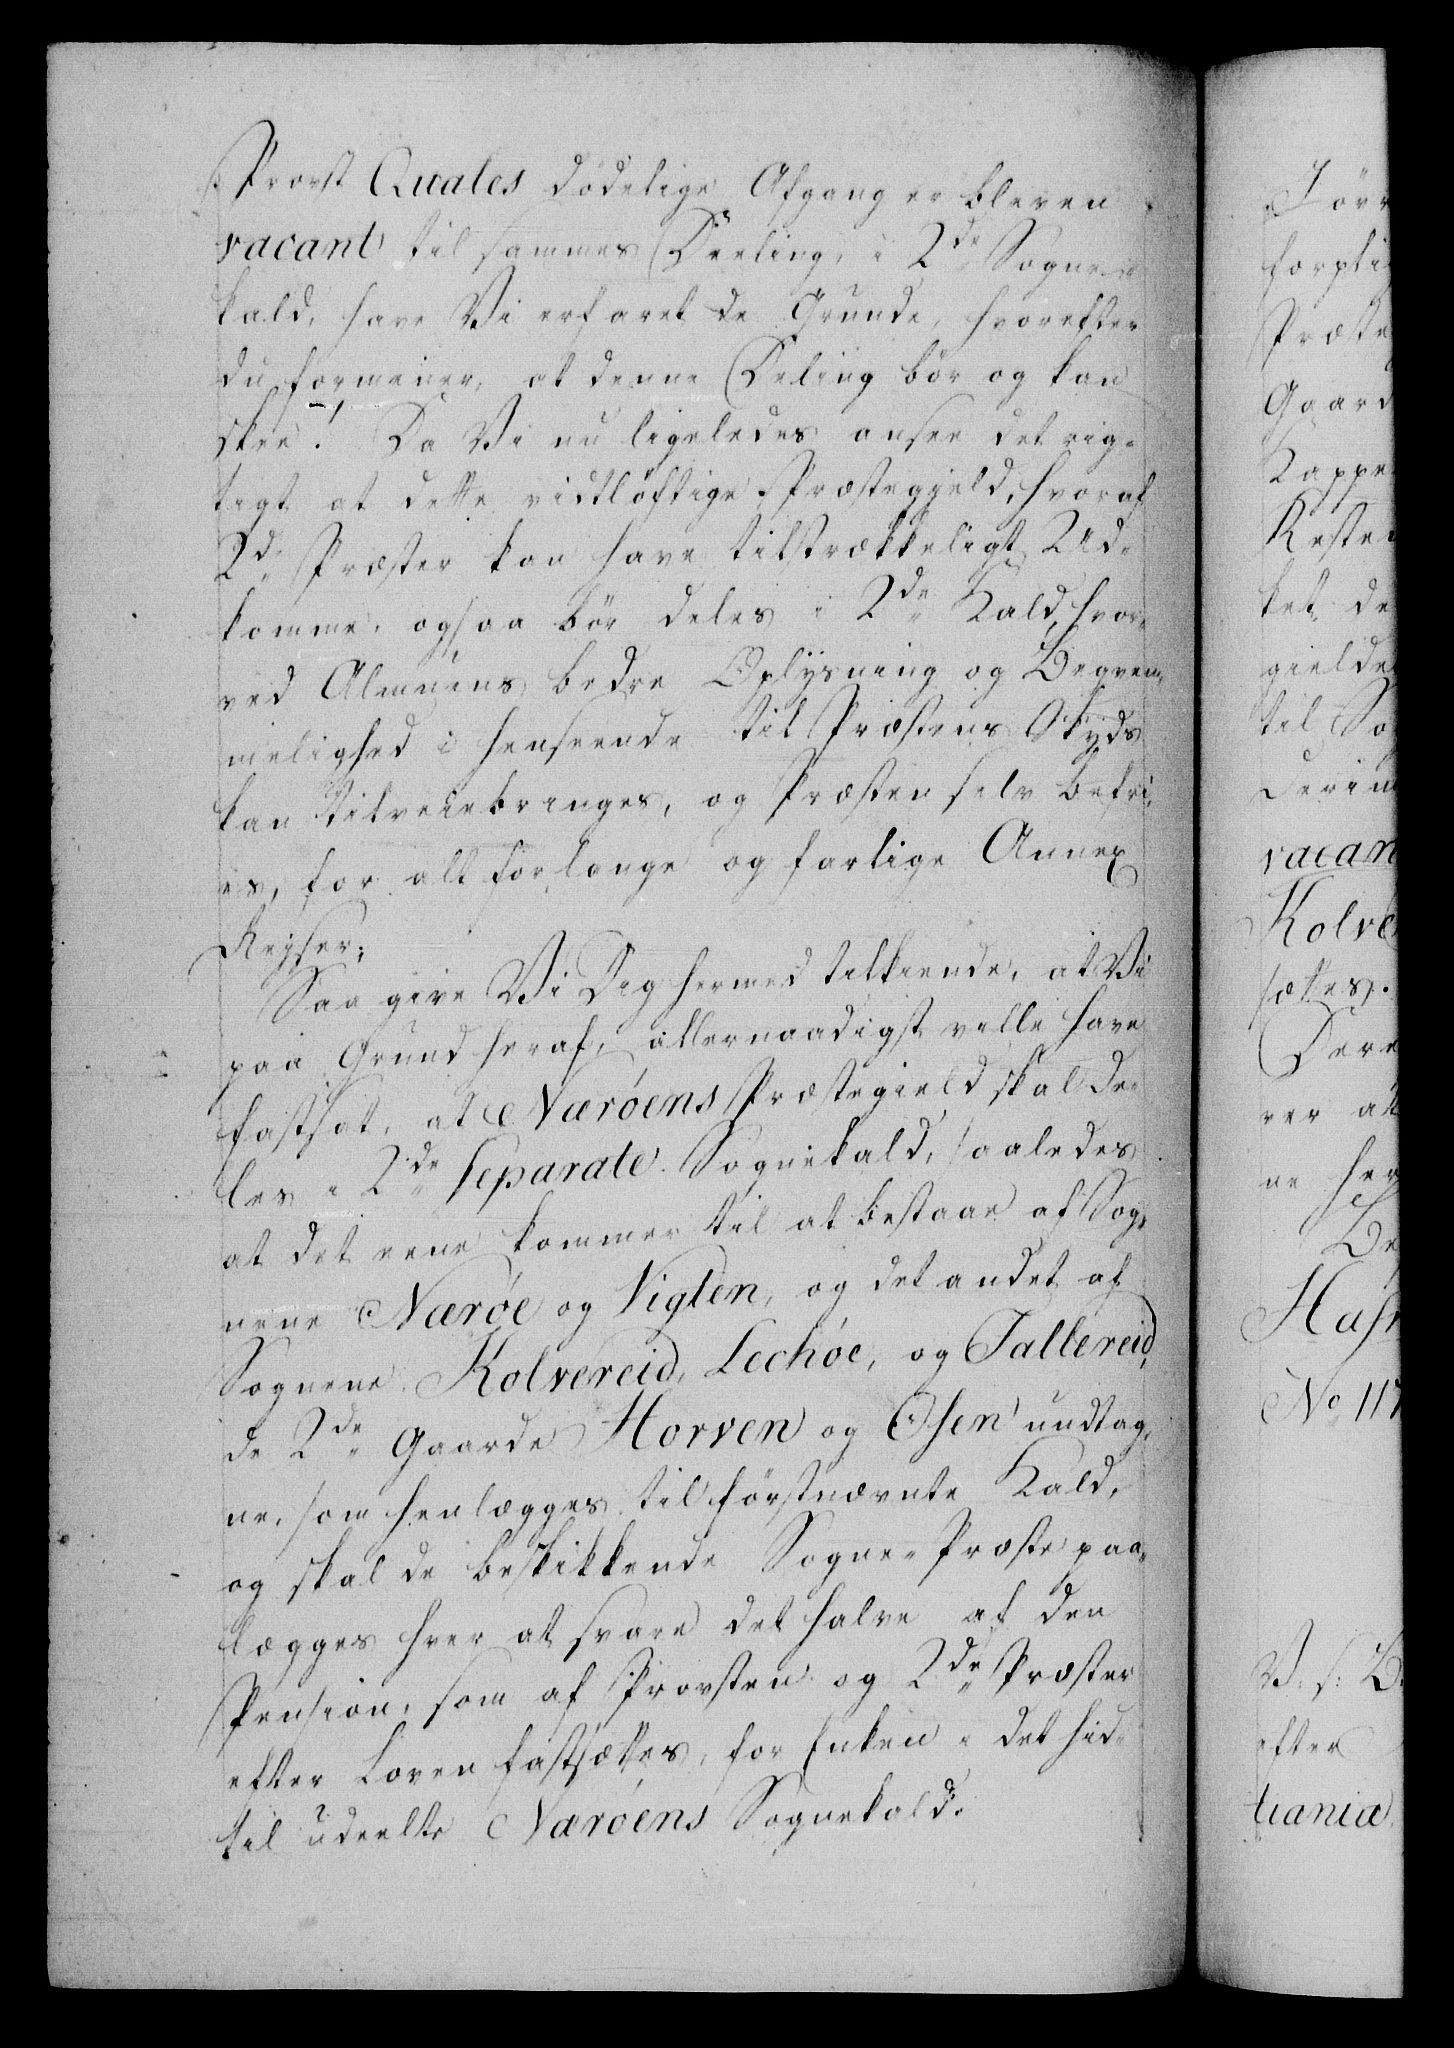 Provst Quales dödelige Afgang er bleven
vacant til sammes Deeling, i 2de Sogne-
kald, have Vi erfaret de Grunde, hvorefter
du formener, at denne Deling bör og kan
skee! Da Vi nu ligeledes ansee det rig-
tigt at dette vidtlöftige Præstegjeld, hvoraf
2de Præster kan have tilstrækkeligt Ud-
komme, ogsaa bör deles i 2de Kald, hvor-
ved Almuens bedre Oplysning og Beqvem-
melighed i Henseende til Præstens Skyds
kan tilveiebringes, og Præsten selv befri-
es, for alt for lange og farlige Annex
Reyser;
Saa give Vi Dig hermed tilkiende, at Vi
paa Grund heraf, allernaadigst ville have
fastsat, at Næröens Præstegield skal de-
les i 2de separate Sognekald, saaledes
at det eene kommer til at bestaae af Sog-
nene Næröe og Vigten, og det andet af
Sognene Kolvereid, Lechöe, og Fallereid,
de 2de Gaarde Horven og Osen undtag-
ne, som henlægges til förstnævnte Kald,
og skal de beskikkende Sogne-Præste paa-
lægges hver at svare det halve af den
Pension, som af Provsten og 2de Præster
efter Loven fastsættes, for Enken i det hid-
til udeelte Næröens Sognekald.
Jörr
forpli
Præste
Gaard
Kappe
Reste
ket de
gielde
til So
Derim
vacan
Kolve
sættes.
Dere
ver at
ne her
Be
Hafn
No 117
V. s: B.
efter
tiania